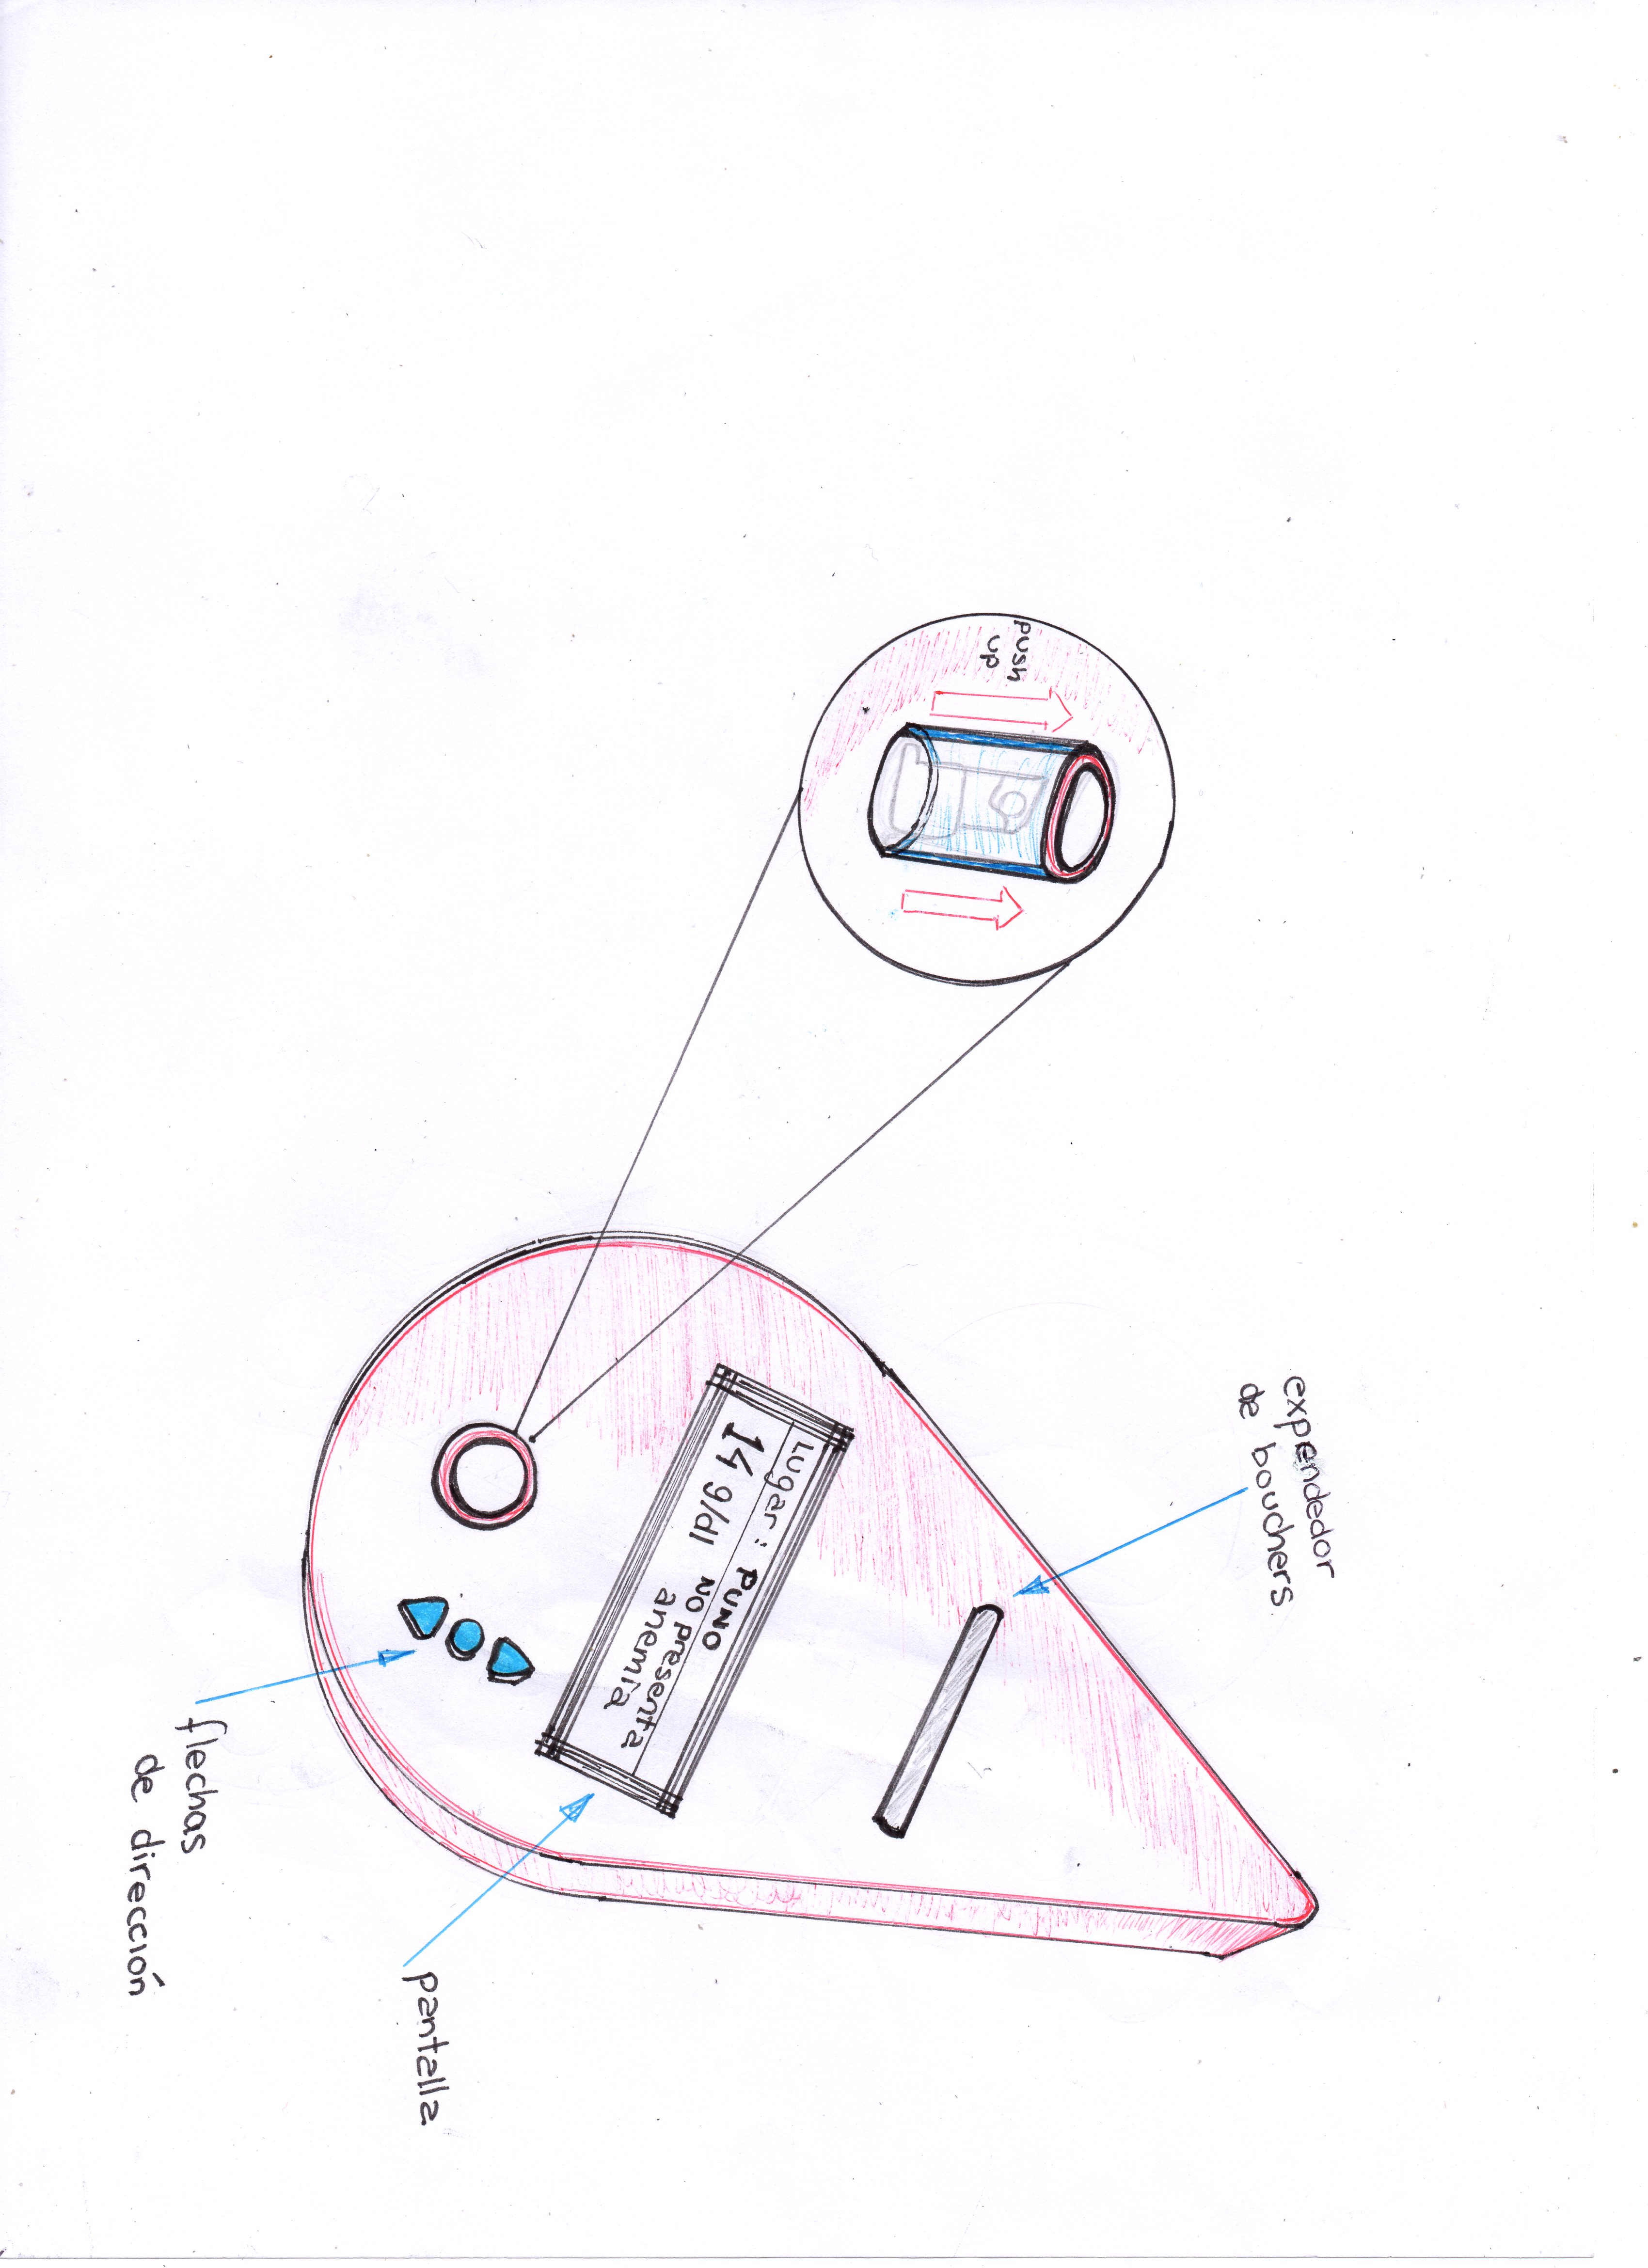 expendedor
de bouchers
push
up
Lugar: PUNO
14 g/dl NO presenta
anemia
pantalla
flechas
de dirección